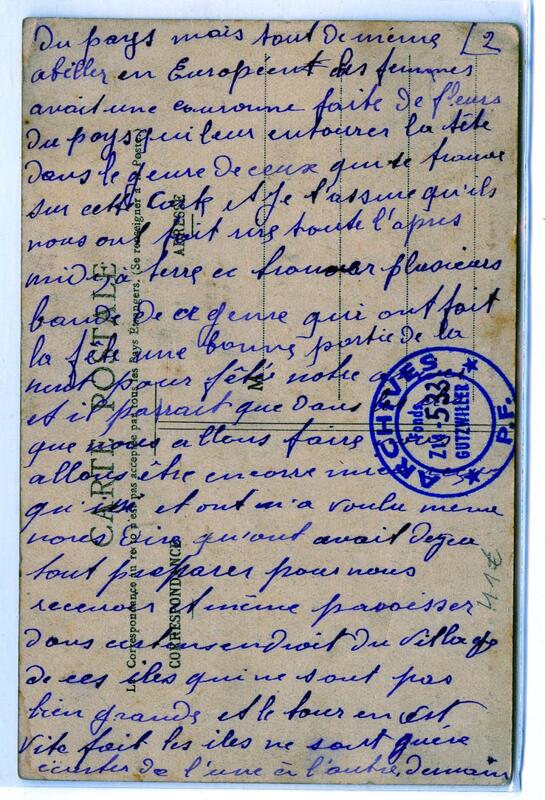 [2
du pays mais tout de même
abiller en Européent des femmes
avait une couronne faite de fleurs
du pays qui leur entourer la tête
dans le genre de ceux qui se trouve
sur cette carte et je t'assure qu'ils
nous ont fait rire toute l'après
midi à terre on trouver plusieurs
bande de ce genre qui ont fait
la fête une bonne partie de la
nuit pour fêté notre
et il parrait que dans
que nous allons faire
allons être encorre
qu'ici et ont m'a voulu même
nous dire qu'ont avait deyea
tout preparer pour nous
recevoir même pavoisser
dans certains endroit du village
de ces iles qui ne sont pas
bien grande et le tour en est
vite fait les iles ne sont guére
écarter de l'une à l'autre, demain
CARTE POSTALE
La Correspondance au recto n'est pas acceptée par tous les Pays Étrangers. (Se renseigner à la Poste)
CORRESPONDANCE
ADRESSE
M
ARCHIVES P.F.
Fonds
GUTZWILLER
41€